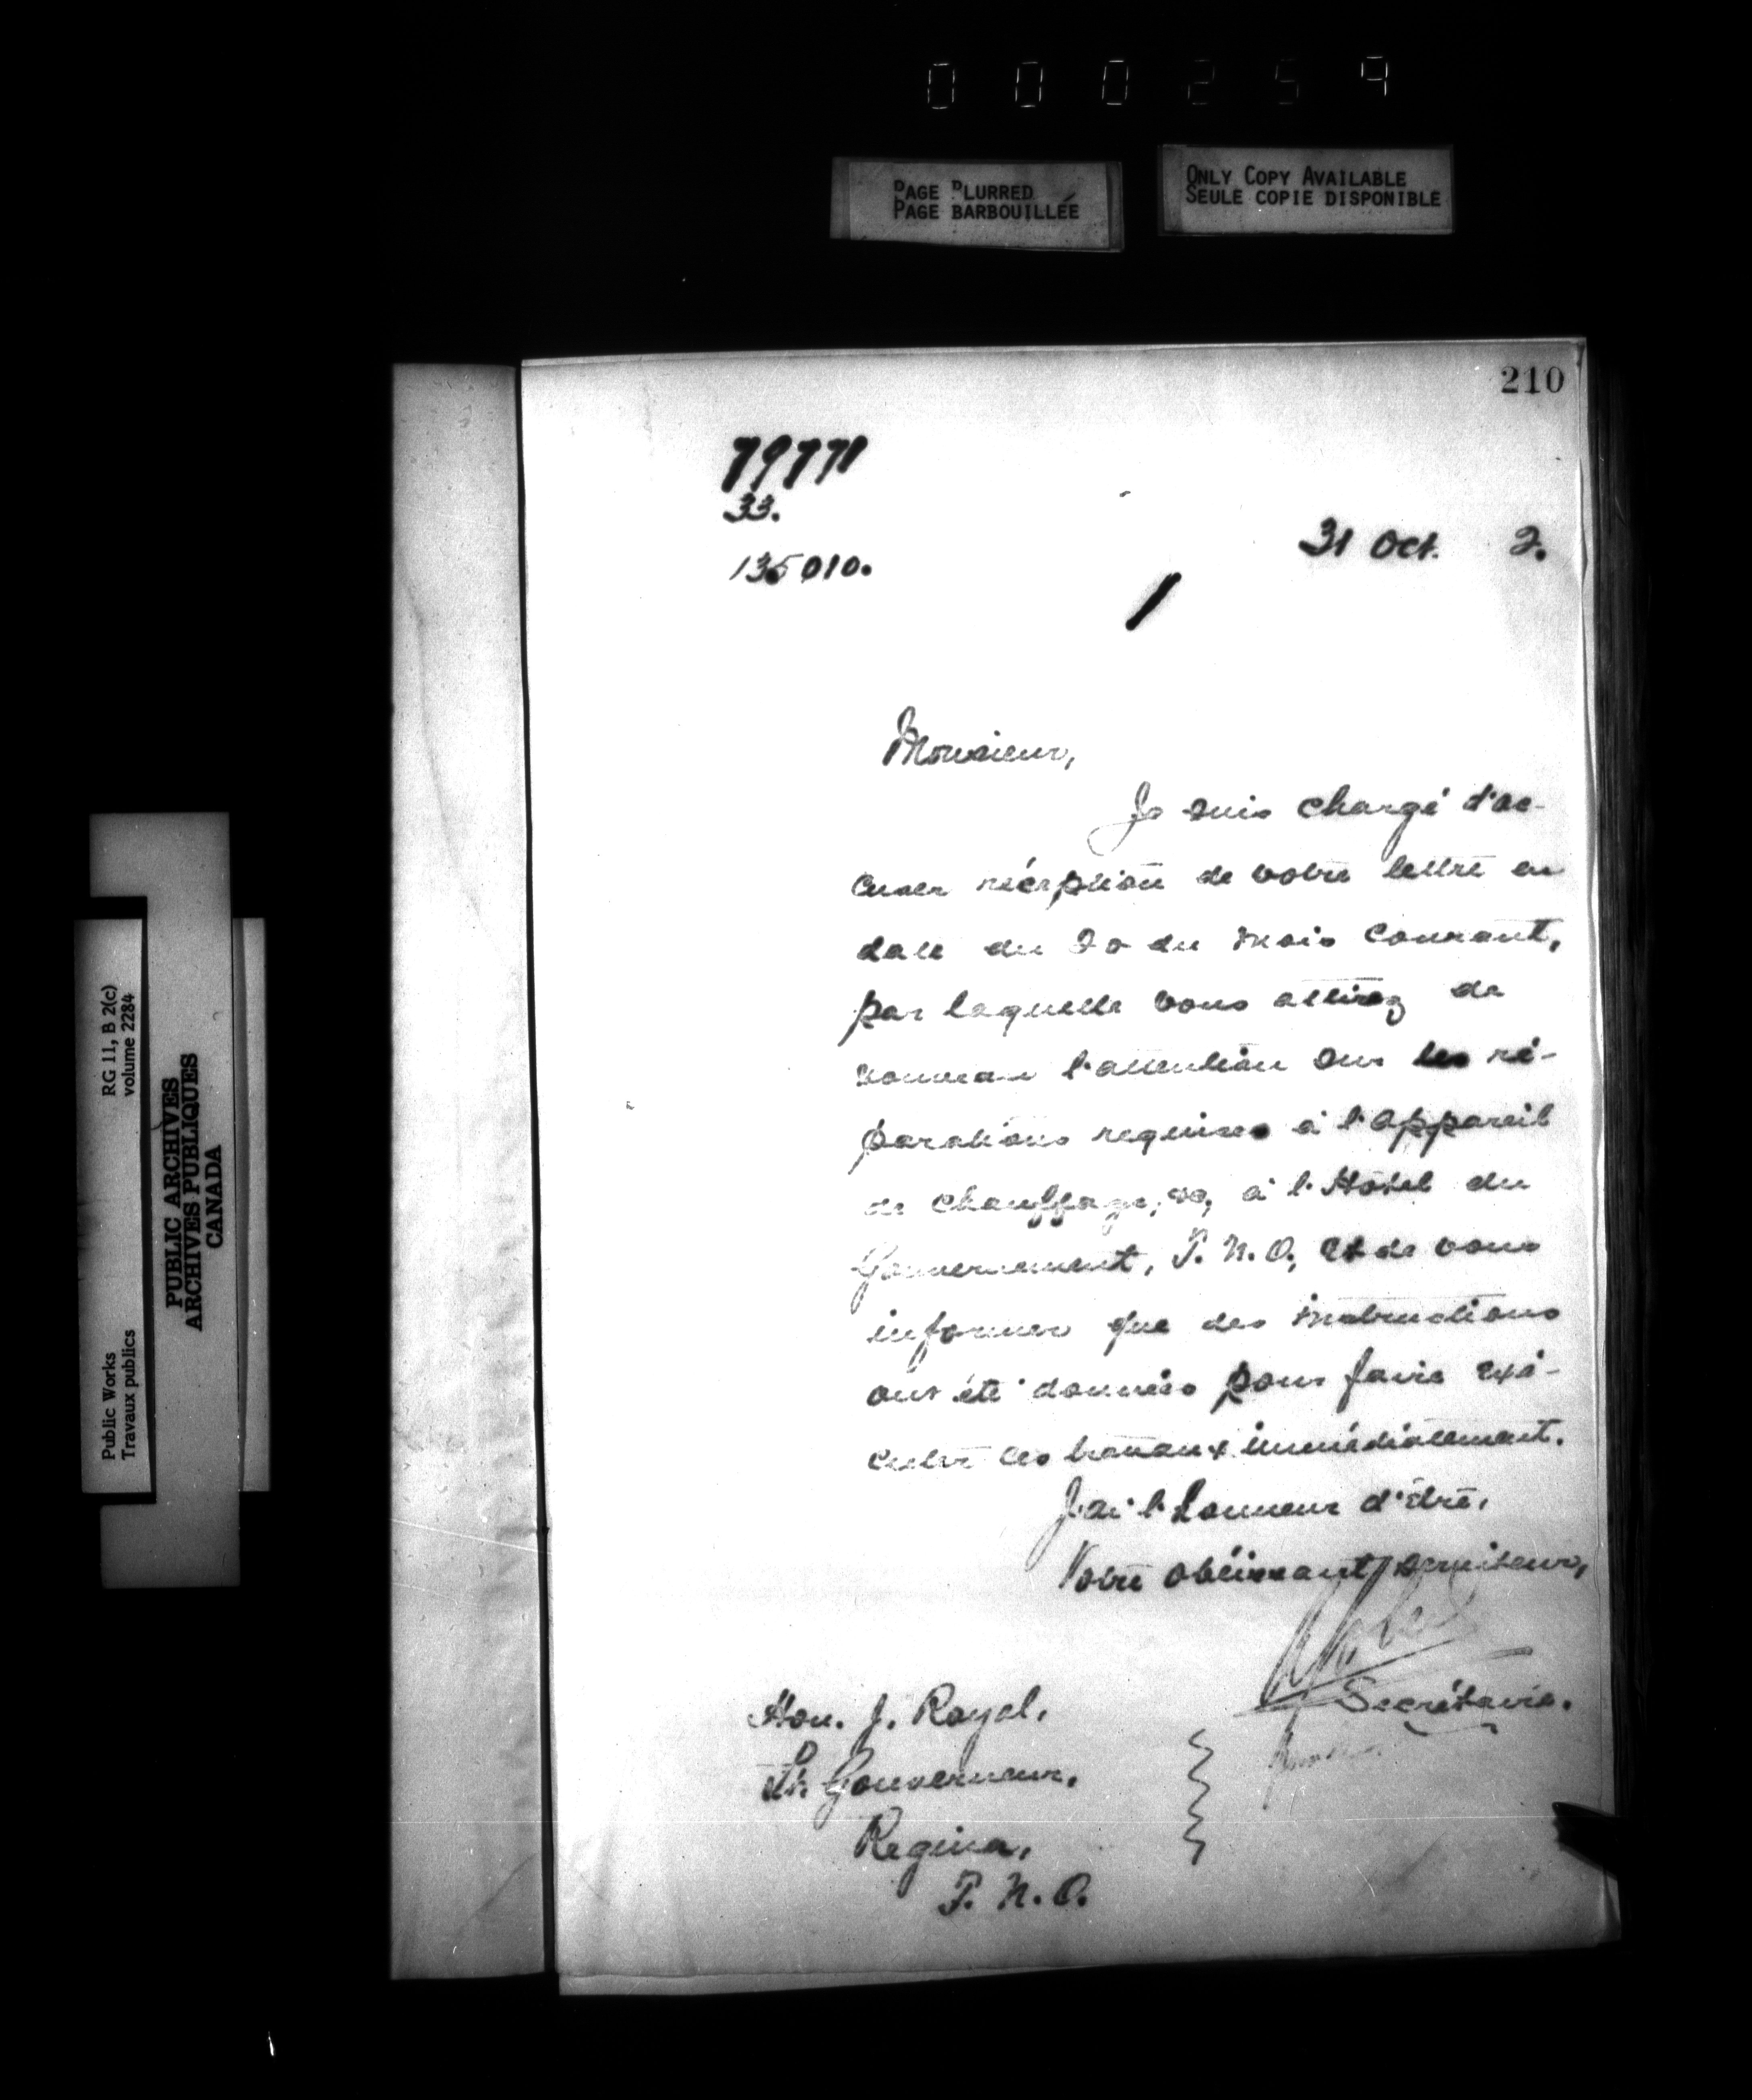 000259
PAGE BLURRED
PAGE BARBOUILLÉE
ONLY COPY AVAILABLE
SEULE COPIE DISPONIBLE
210
79771
33.
135010.
31 Oct. 2.
Monsieur,
Je suis chargé d'ac-
cuser réception de votre lettre en
date du 20 du mois courant,
par laquelle vous attirez de
nouveau l'attention sur les ré-
parations requises à l'appareil
de chauffage, &c, à l'Hôtel du
Gouvernement, T. N. O., et de vous
informer que des instructions
ont été données pour faire exé-
cuter les travaux immédiatement.
J'ai l'honneur d'être,
Votre obéissant serviteur,
Secrétaire.
Hon. J. Royal,
Lt. Gouverneur,
Regina,
T. N. O.
Public Works
Travaux publics
RG 11, B 2(c)
volume 2284
PUBLIC ARCHIVES
ARCHIVES PUBLIQUES
CANADA